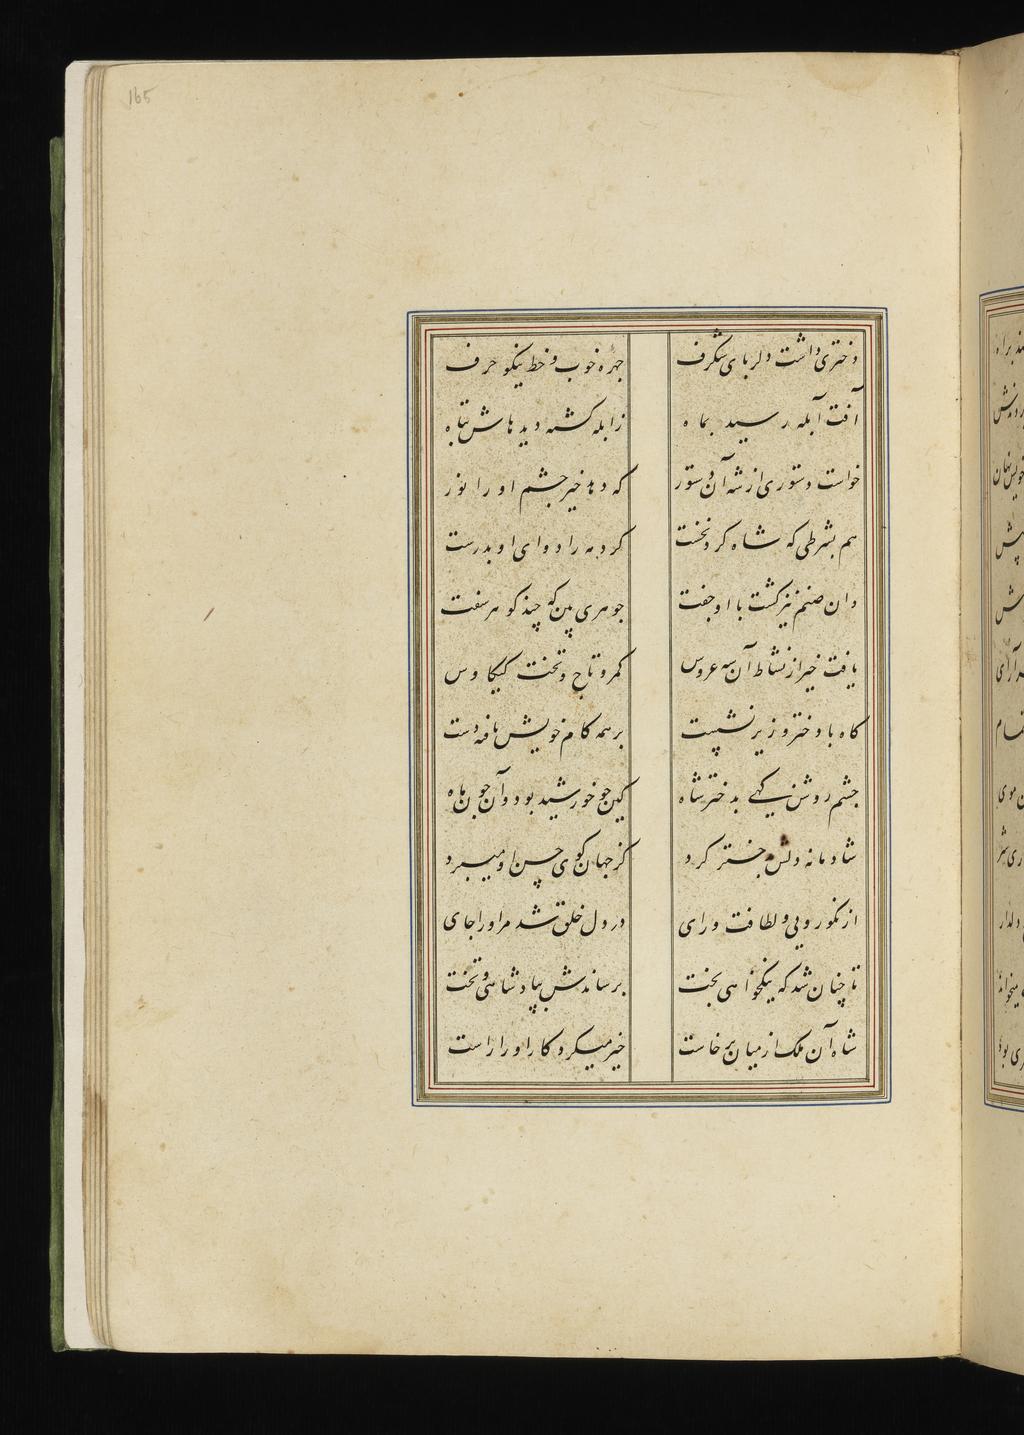 165
دختری داشت دلربای شگرف
چهره خوب و خط نیکو حرف
آفت آبله رسید بماه
ز ابله گشته دیدهاش تباه
خواست دستوری از شه آن دستور
که دهد خیر چشم او را نور
هم بشرطی که شاه کرد نخست
کرد مه را دوای او بدرست
وان صنم نیز گشت با او جفت
جوهری بین که چند گوهر سفت
یافت خیر از نشاط آن سه عروس
کمر و تاج و تخت کیکاوس
گاه با دختر وزیر نشست
بر همه کام خویش یافته دست
چشم روشن گهی بدختر شاه
کین چو خورشید بود و آن چون ماه
شادمانه دلش
کز جهان گوی حسن او میبرد
از نکورویی و لطافت و رای
در دل خلق شد مر او را جای
تا چنان شد که نیکخواهی بخت
برساندش بپادشاهی و تخت
شاه آن ملک از میان برخاست
خیر میکرد کار او را راست